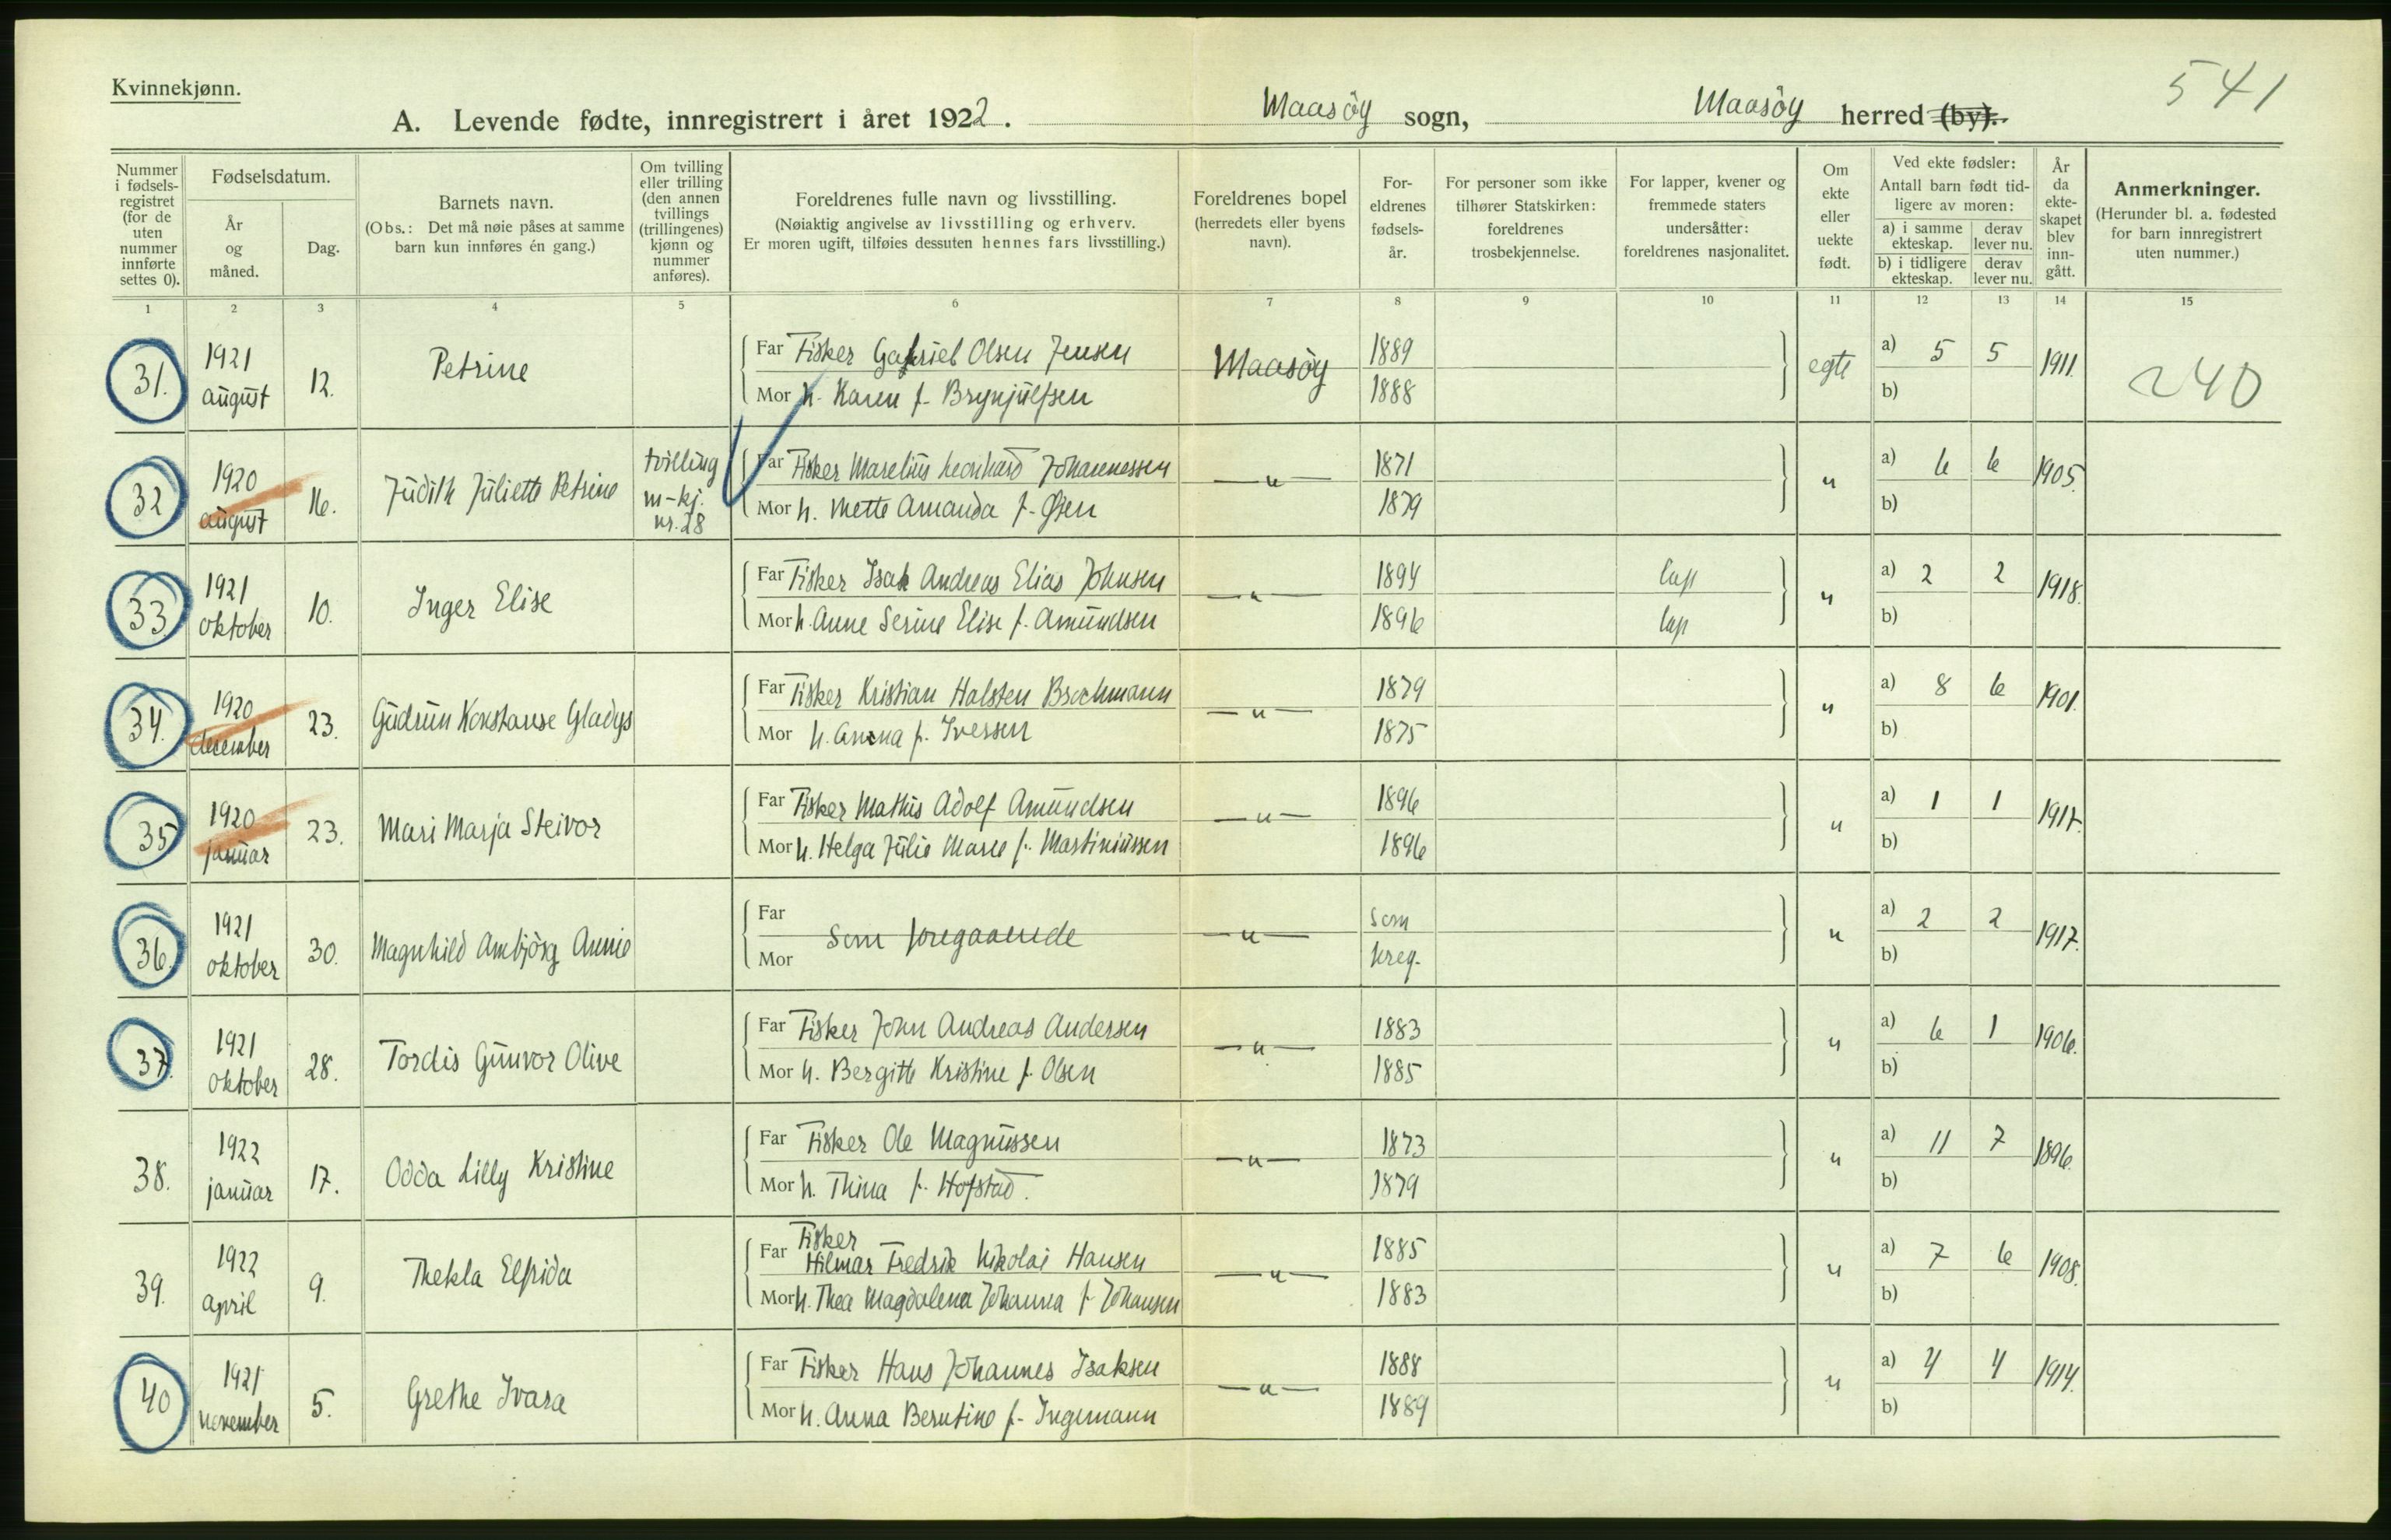 Kvinnekjønn.
541
A. Levende fødte, innregistrert i året 1922. Maasöy sogn, Maasöy herred (by).
Nummer i fødselsregistret (for de uten nummer innførte settes 0).
Fødselsdatum.
År og måned.
Dag.
Barnets navn.
(Obs.: Det må nøie påses at samme barn kun innføres én gang.)
Om tvilling eller trilling (den annen tvillings (trillingenes) kjønn og nummer anføres).
Foreldrenes fulle navn og livsstilling.
(Nøiaktig angivelse av livsstilling og erhverv.
Er moren ugift, tilføies dessuten hennes fars livsstilling.)
Foreldrenes bopel (herredets eller byens navn).
Foreldrenes fødselsår.
For personer som ikke tilhører Statskirken: foreldrenes trosbekjennelse.
For lapper, kvener og fremmede staters undersåtter: foreldrenes nasjonalitet.
Om ekte eller uekte født.
Ved ekte fødsler:
Antall barn født tidligere av moren:
a) i samme ekteskap. derav lever nu.
b) i tidligere ekteskap. derav lever nu.
År da ekteskapet blev inngått.
Anmerkninger.
(Herunder bl. a. fødested for barn innregistrert uten nummer.)
1 2 3 4 5 6 7 8 9 10 11 12 13 14 15
31. 1921 august 12. Petrine Far Fisker Gabriel Olsen Jensen Maasöy 1889 egte a) 5 5 1911. 240
Mor h. Karen f. Brynjülfsen 1888 b)
32 1920 august 16. Jüdith Jüliette Petrine tvilling m-kj. nr. 28 Far Fisker Marelius Leonhard Johannessen — " — 1871 " a) 6 6 1905.
Mor h. Mette Amanda f. Olsen 1879 b)
33 1921 oktober 10. Inger Elise Far Fisker Isak Andreas Elias Johnsen — " — 1894 lap " a) 2 2 1918.
Mor h. Anne Serine Elise f. Amündsen 1896 lap b)
34. 1920 december 23. Güdrün Konstanse Gladys Far Fisker Kristian Halsten Brochmann — " — 1879 " a) 8 6 1901.
Mor h. Anna f. Iversen 1875 b)
35 1920 janüar 23. Mari Marja Steivor Far Fisker Mathis Adolf Amündsen — " — 1896 " a) 1 1 1917.
Mor h. Helga Jülie Marie f. Martiniüssen 1896 b)
36. 1921 oktober 30. Magnhild Ambjörg Annie Far Mor Som foregaaende — " — som foreg. " a) 2 2 1917.
b)
37. 1921 oktober 28. Tordis Günvor Olive Far Fisker John Andreas Andersen — " — 1883 " a) 6 1 1906.
Mor h. Bergitte Kristine f. Olsen 1885 b)
38. 1922 janüar 17. Odda Lilly Kristine Far Fisker Ole Magnüssen — " — 1873 " a) 11 7 1896.
Mor h. Thina f. Hofstad. 1879 b)
39. 1922 april 9. Thekla Elfrida Far Fisker Hilmar Fredrik Nikolai Hansen — " — 1885 " a) 7 6 1908.
Mor h. Thea Magdalena Johanna f. Johansen 1883 b)
40 1921 november 5. Grethe Ivara Far Fisker Hans Johannes Isaksen — " — 1888 " a) 4 4 1914.
Mor h. Anna Berntine f. Ingemann 1889 b)